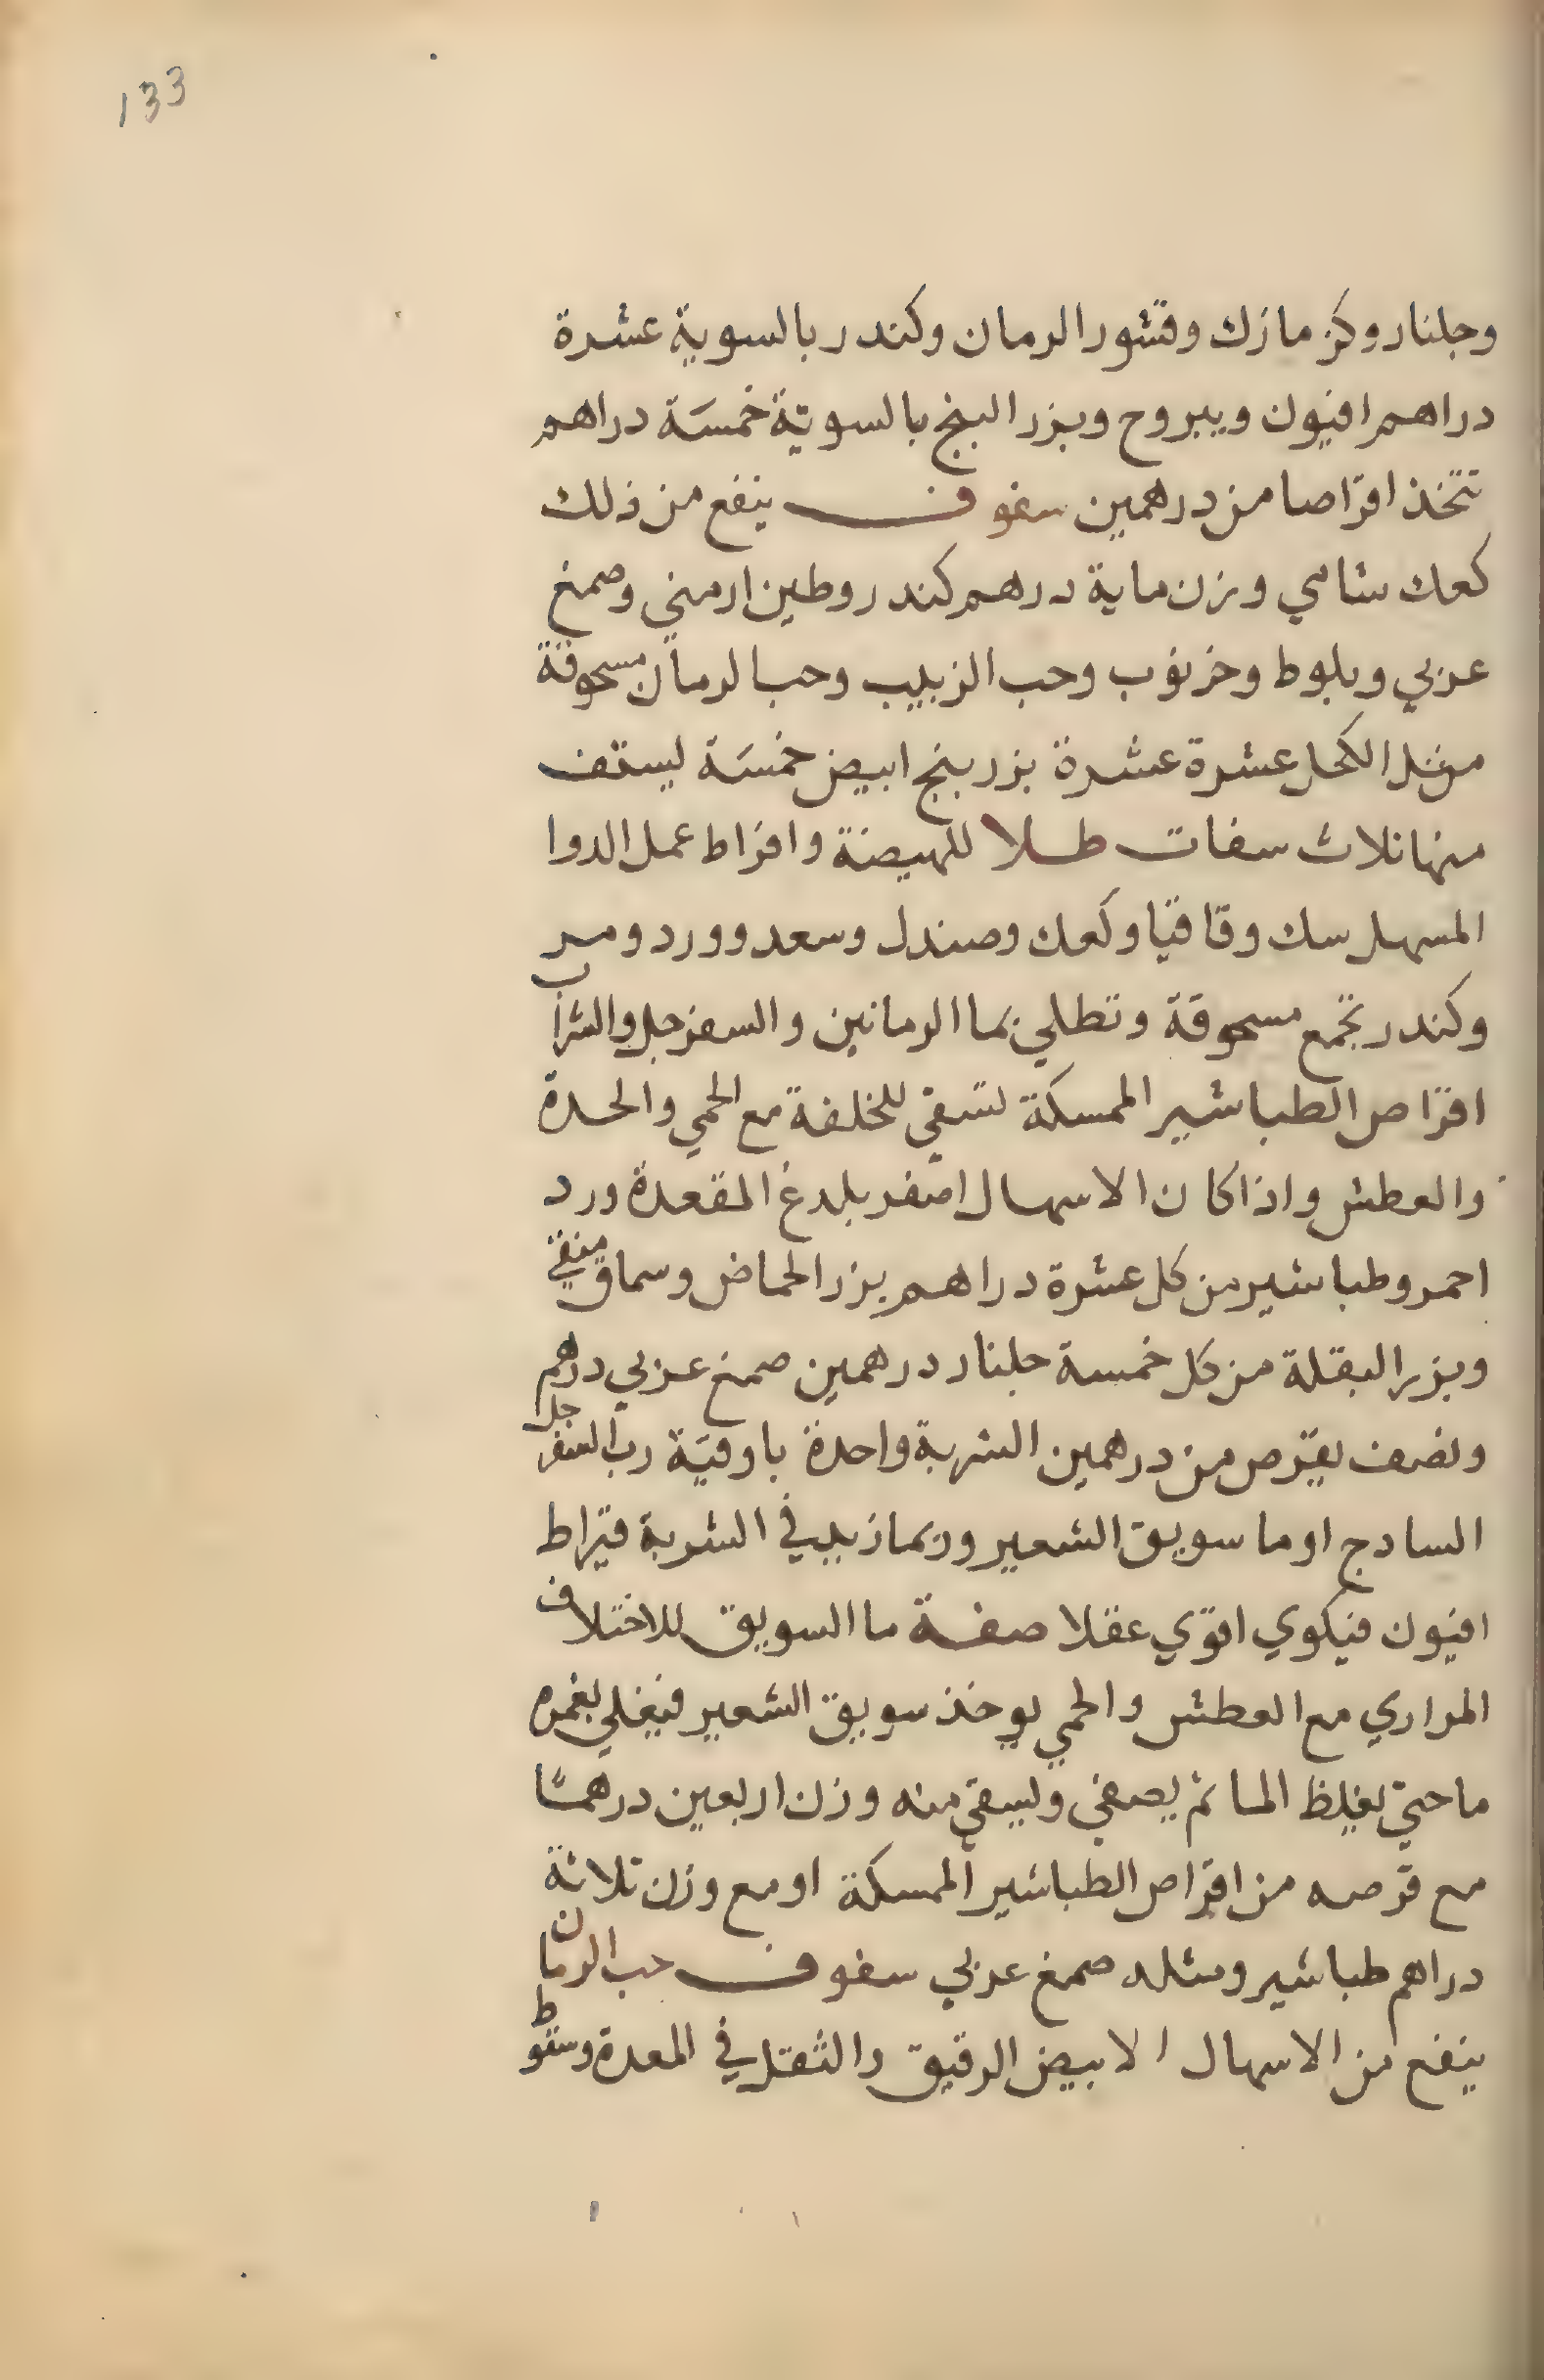 133
وجلنار وكزمازك وقشور الرمان وكندر بالسوية عشرة
دراهم افيون ويبروح وبزر البنج بالسوية خمسة دراهم
تتخذ اقراصا من درهمين سفوف ينفع من ذلك
كعك شامي وزن ماية درهم كندر وطين ارمني وصمغ
عربي وبلوط وخرنوب وحب الزبيب وحب الرمان مسحوقة
مثل الكحل عشرة عشرة بزر بنج ابيض خمسة يستف
منها ثلاث سفات طلا للهيضة وافراط عمل الدوا
المسهل سك وقاقيا وكعك وصندل وسعد وورد ومر
وكندر تجمع مسحوقة وتطلي بما الرمانين والسفرجل والشراب
اقراص الطباشير الممسكة تسقي للخلفة مع الحمي والحدة
والعطش واذا كان الاسهال اصفر يلدغ المقعدة ورد
احمر وطباشير من كل عشرة دراهم بزر الحماض وسماق منقي
وبزر البقلة من كل خمسة جلنار درهمين صمغ عربي درهم
ونصف يقرص من درهمين الشربة واحدة باوقية رب السفرجل
السادج او ما سويق الشعير وربما زيد في الشربة قيراط
افيون فيكوي اقوي عقلا صفة ما السويق للاختلاف
المراري مع العطش والحمي يوخذ سويق الشعير فيغلي بغمره
ما حتي يغلظ الما ثم يصفي ويسقي منه وزن اربعين درهمًا
مع قرصه من اقراص الطباشير الممسكة او مع وزن ثلاثة
دراهم طباشير ومثله صمغ عربي سفوف حب الرمان
ينفع من الاسهال الابيض الرقيق والثقل في المعدة وسقوط